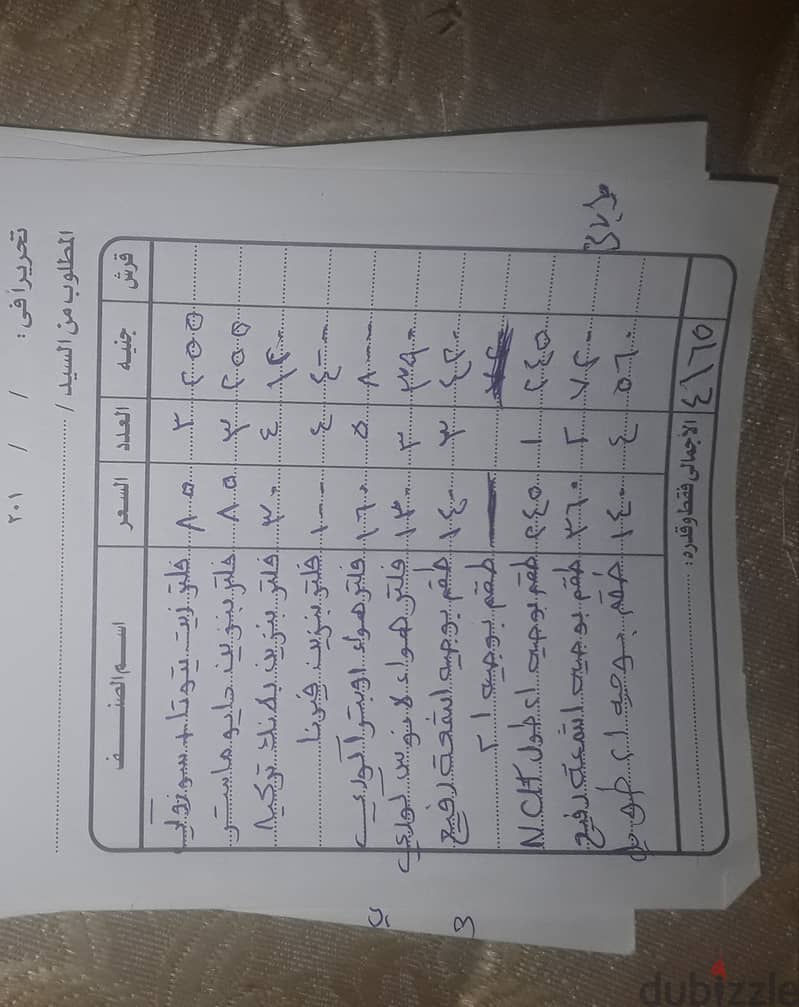 تحريرا في : / / ٢٠١
المطلوب من السيد /
اسم الصنف السعر العدد جنيه قرش
فلتر زيت تيوتا + سوزوكى ٨٥ ٣ ٢٥٥
فلتر بنزين دايو ماستر ٨٥ ٣ ٢٥٥
فلتر بنزين بلاتك تركيه ٣٠ ٤ ١٢٠
فلتر بنزين فيرنا ١٠٠ ٤ ٤٠٠
فلتر هواء اوبترا كوري ١٦٠ ٥ ٨٠٠
فلتر هواء لانوس كوري ١٣٠ ٣ ٣٩٠
طقم بوجيه شمعة رفيع ١٤٠ ٣ ٤٢٠
طقم بوجيه ٢١
طقم بوجيه ٢١ طول N.CH ٢٤٥ ١ ٢٤٥
طقم بوجيه شمعة رفيع ٣٦٠ ٢ ٧٢٠
طقم بوجيه ٢١ طويل ١٤٠ ٤ ٥٦٠
الاجمالى فقط وقدره : ٤١٦٥
dubizzle